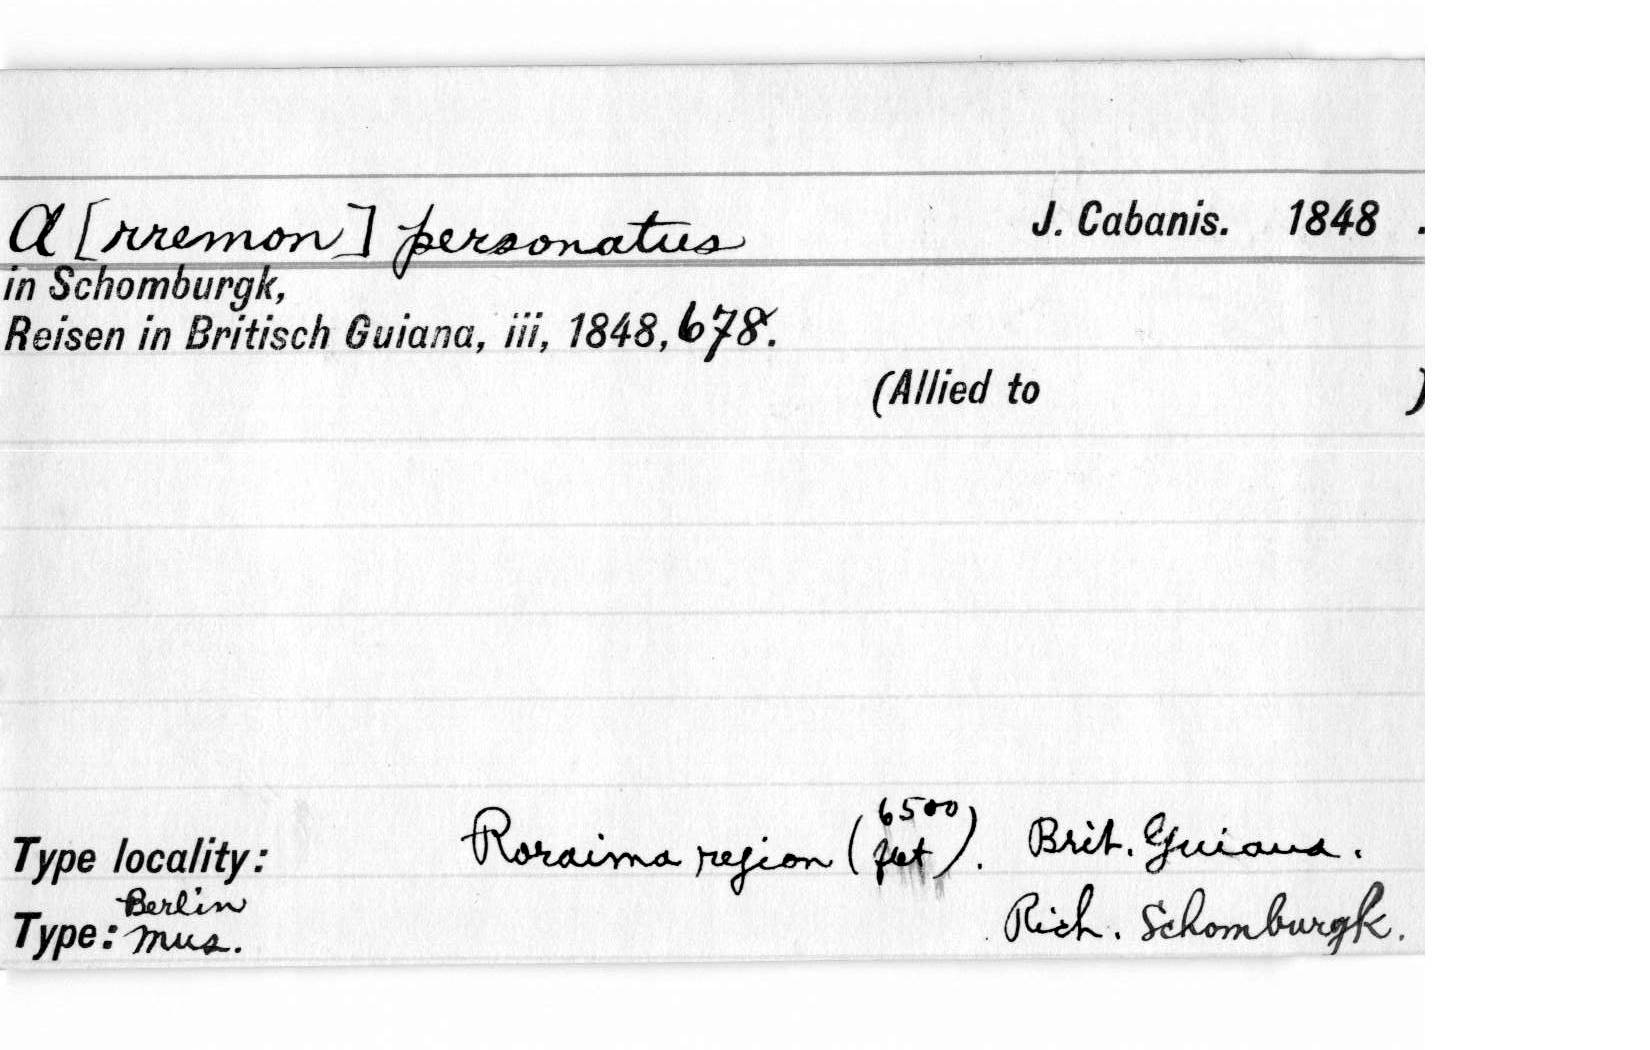 A[rremon] personatus J. Cabanis. 1848 .
in Schomburgk,
Reisen in Britisch Guiana, iii, 1848, 678.
(Allied to )
Type locality: Roraima region (6500 feet). Brit. Guiana.
Type: Berlin Mus. Rich. Schomburgk.